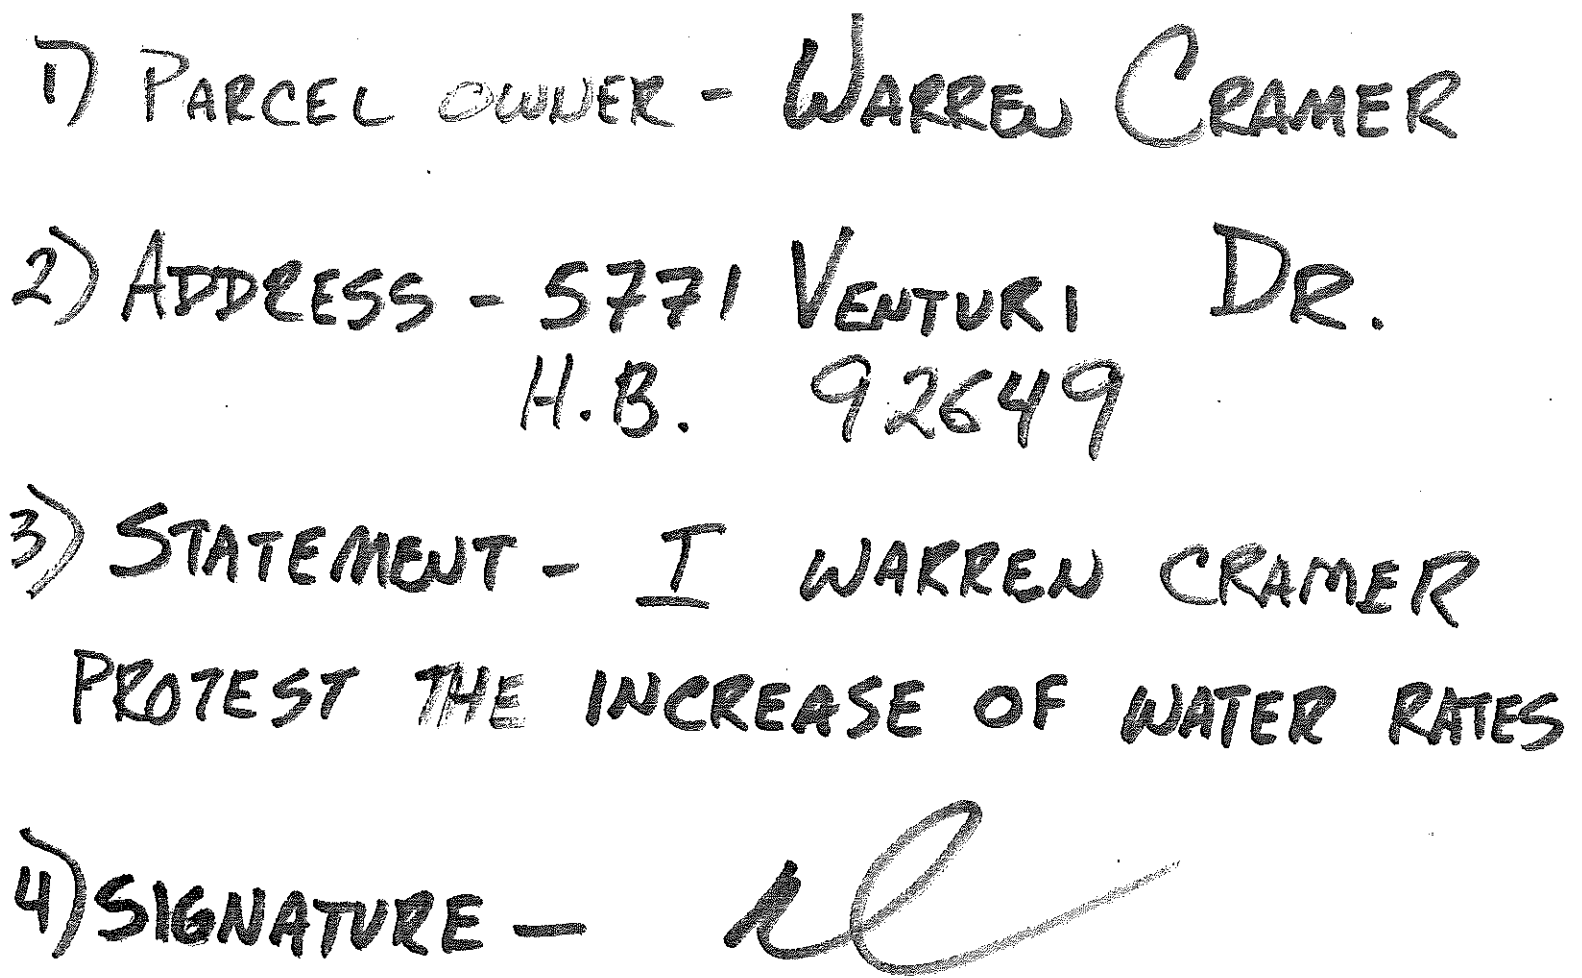 1) PARCEL OWNER - WARREN CRAMER
2) ADDRESS - 5771 VENTURI DR.
H.B. 92649
3) STATEMENT - I WARREN CRAMER
PROTEST THE INCREASE OF WATER RATES
4) SIGNATURE -